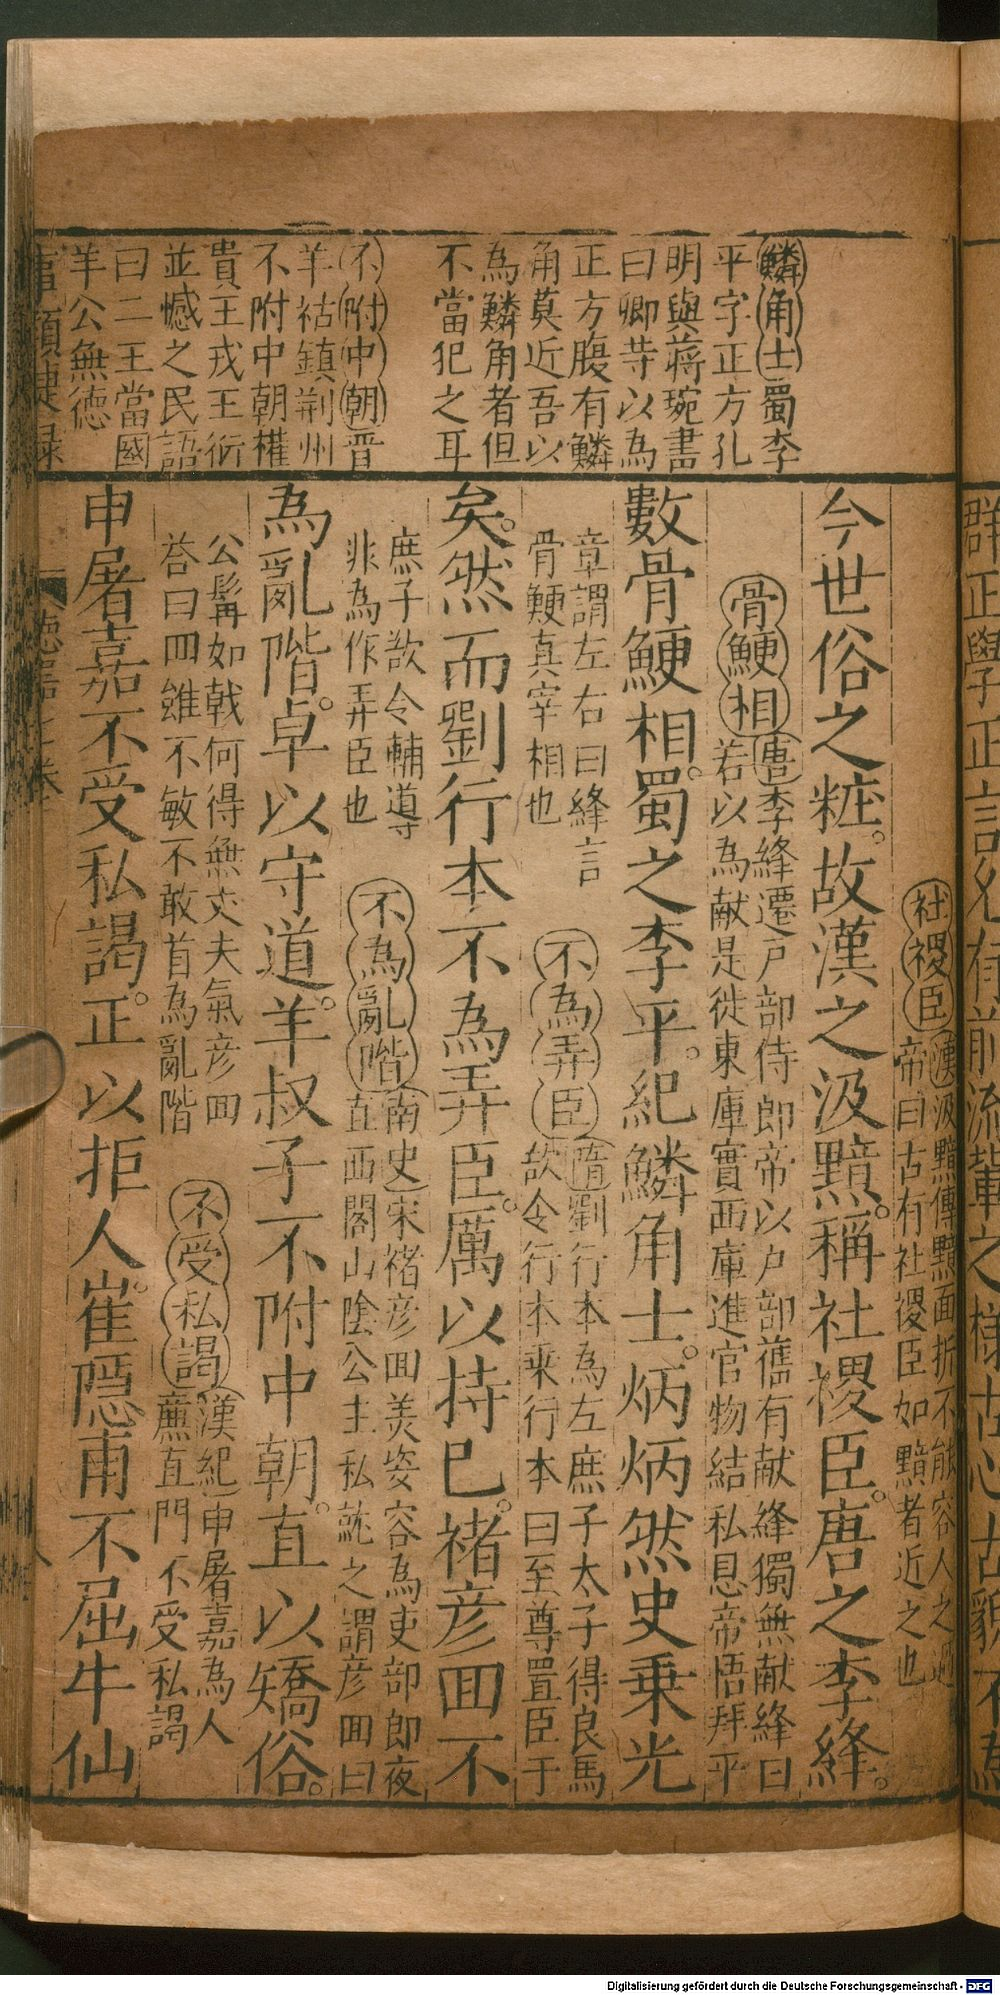 鱗角士蜀李
平字正方孔
明與蔣琬書
曰卿昔以為
正方腹有鱗
角莫近吾以
為鱗角者但
不當犯之耳
不附中朝晋
羊祜鎮荆州
不附中朝權
貴王戎王衍
並憾之民語
曰二王當國
羊公無德
社稷臣
漢汲黯傳黯面折不能容人之過
帝曰古有社稷臣如黯者近之也
今世俗之粧。故漢之汲黯。稱社稷臣。唐之李絳。
骨鯁相
唐李絳遷戸部侍郎帝以戸部舊有献絳獨無献絳曰
若以為献是徙東庫實西庫進官物結私恩帝悟拜平
數骨鯁相。蜀之李平。紀鱗角士。炳炳然史乗光
章謂左右曰絳言
骨鯁真宰相也
不為弄臣
隋劉行本為左庶子太子得良馬
欲令行本乗行本曰至尊置臣于
矣。然而劉行本不為弄臣。厲以持已。褚彦囬不
庶子欲令輔導
非為作弄臣也
不為亂階
南史宋褚彦囬美姿容為吏部郎夜
直西閣山陰公主私就之謂彦囬曰
為亂階。卓以守道。羊叔子不附中朝。直以矯俗。
公髯如戟何得無丈夫氣彦囬
荅曰囬雖不敏不敢首為亂階
不受私謁
漢紀申屠嘉為人
廉直門不受私謁
申屠嘉不受私謁。正以拒人。崔隠甫不屈牛仙
Digitalisierung gefördert durch die Deutsche Forschungsgemeinschaft - DFG